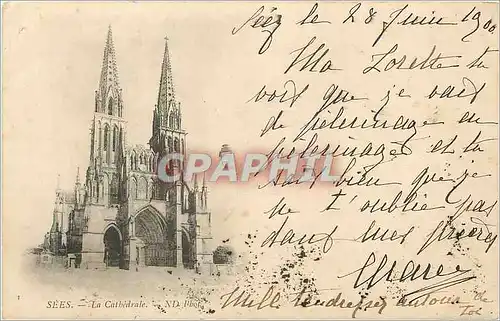 Séez le 28 Juin 1900
Ma Lorette tu
vois que je vais
de pèlerinage en
pèlerinages et tu
sais bien que je
ne t'oublie pas
dans mes prières
Marie
Mille tendresses autour de
toi
CPAPHIL
1
SÉES. - La Cathédrale. - ND Phot